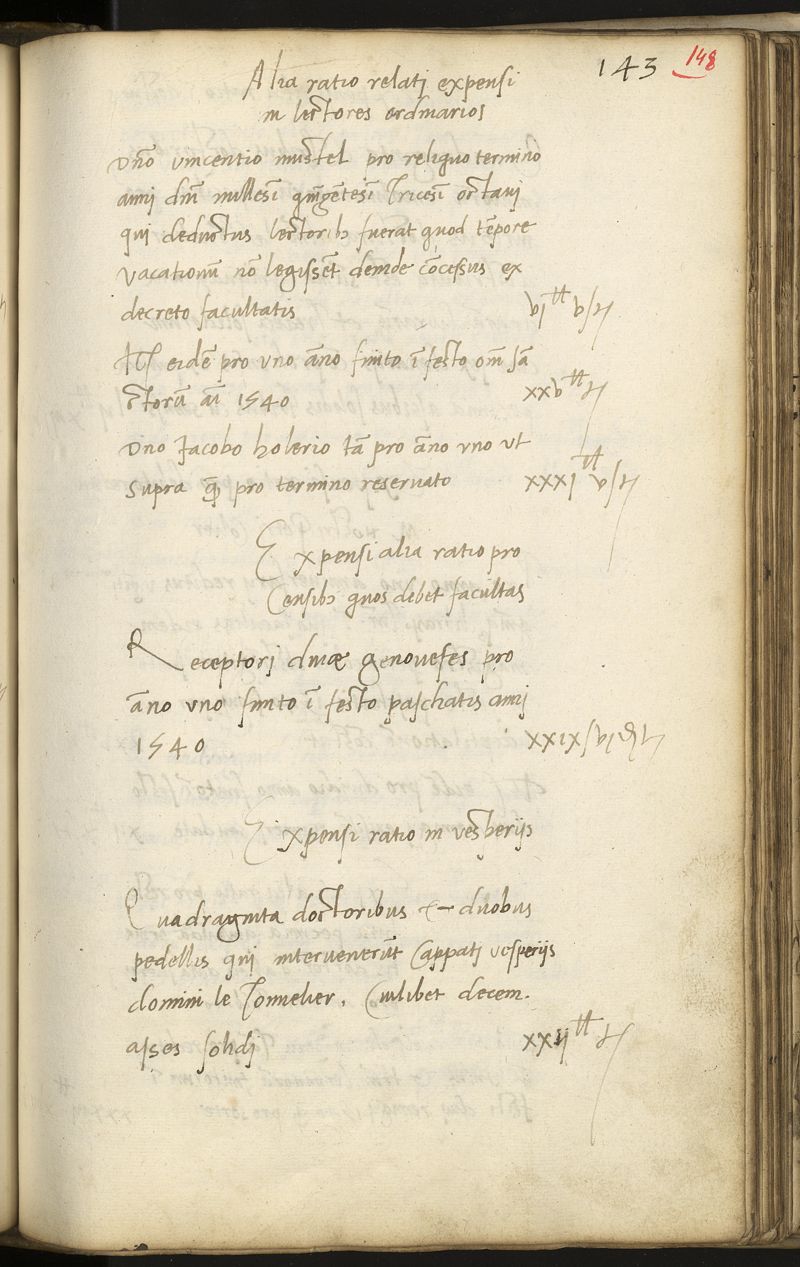 143 148
Alia ratio relatj expensi
in lectores ordinarios
Dño vincentio mustel pro reliquo termino
annj dm̃ millesĩ qm̃gẽtesĩ Tricesĩ octavj
quj deductus lectorib fuerat quod tẽpore
vacationũ nõ legissẽt deinde cõcessus ex
decreto facultatis vj tt v s t
Itẽ eidẽ pro vno año finito ĩ festo om̃ sã
ctorũ añi 1540 xxv tt t
Dno Jacobo holerio tã pro año vno vt
supra q̃ pro termino reservato xxxj tt v s t
Expensi alia ratio pro
Censib quos debet facultas
Receptorj divæ genovefes pro
año vno finito ĩ festo paschatis annj
1540 xxix s vj d t
Expensi ratio in vesperijs
Quadraginta doctoribus & duobus
pedellis quj intervenerũt Cappatj vesperijs
domini le Tonnelier. Cuilibet decem.
asses solidj xxij tt t